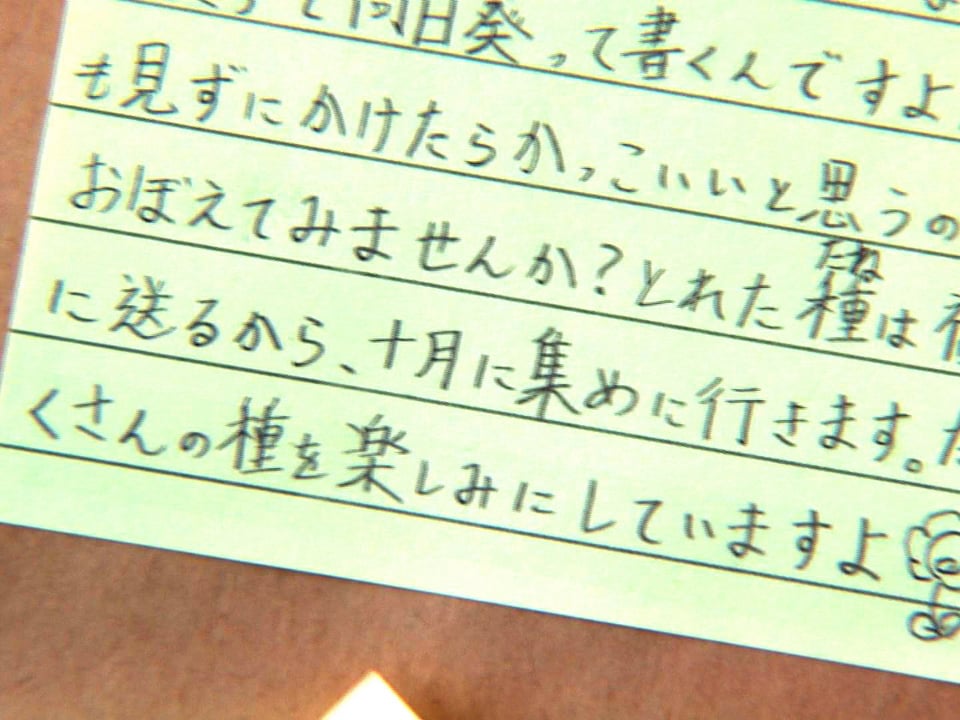 向日葵って書くんですよ
も見ずにかけたらかっこいいと思うの
おぼえてみませんか？とれた種たねは
に送るから、十月に集めに行きます。た
くさんの種を楽しみにしていますよ